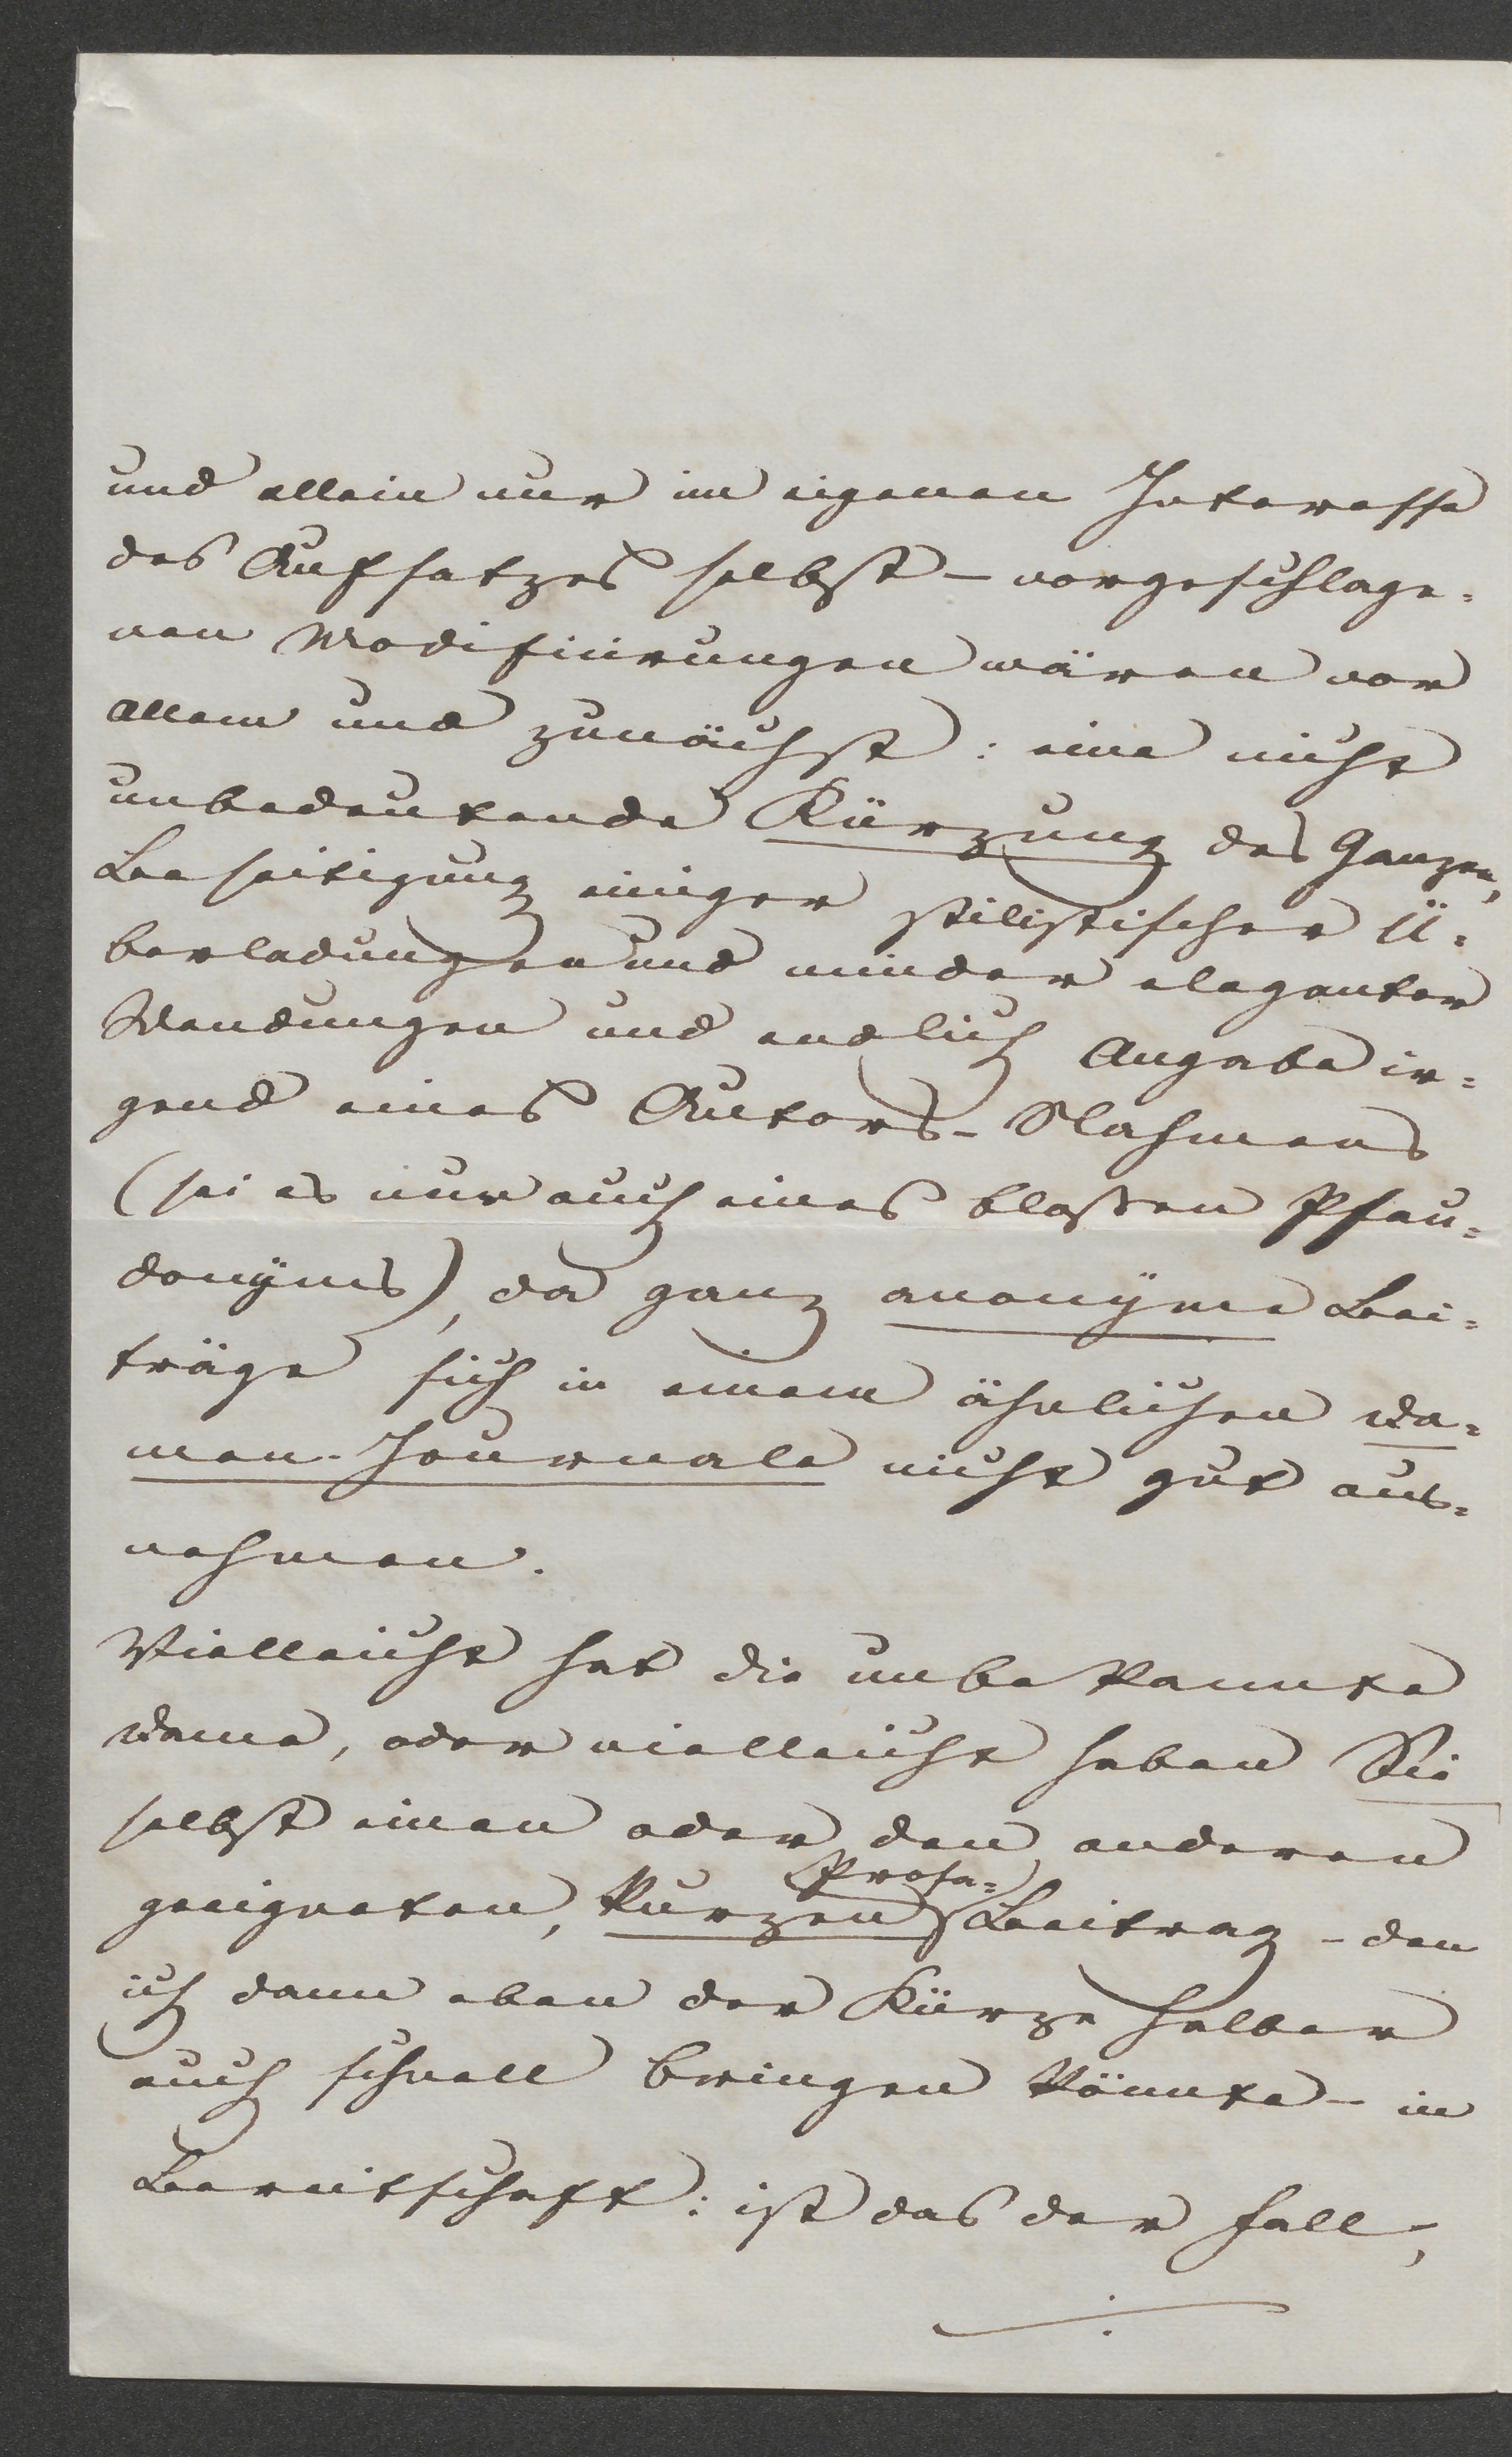 und allein nur im eigenen Interesse
des Aufsatzes selbst – vorgeschlage-
nen Modifizirungen wären vor
allem und zunächst: eine nicht
unbedeutende Kürzung des Ganzen,
Beseitigung einiger stilistischer Ü-
berladungen und minder eleganter
Wendungen und endlich Angabe ir-
gend eines Autors-Nahmens
(sei es nur auch eines blossen Pseu-
donÿms), da ganz anonÿme Bei-
träge sich in einem ähnlichen Da-
men-Journale nicht gut aus-
nehmen.
Vielleicht hat die unbekannte
Dame, oder vielleicht haben Sie
selbst einen oder den anderen
geeigneten, kurzen Prosa-Beitrag – den
ich dann eben der Kürze halber
auch schnell bringen könnte – in
Bereitschaft: ist das der Fall,
./.